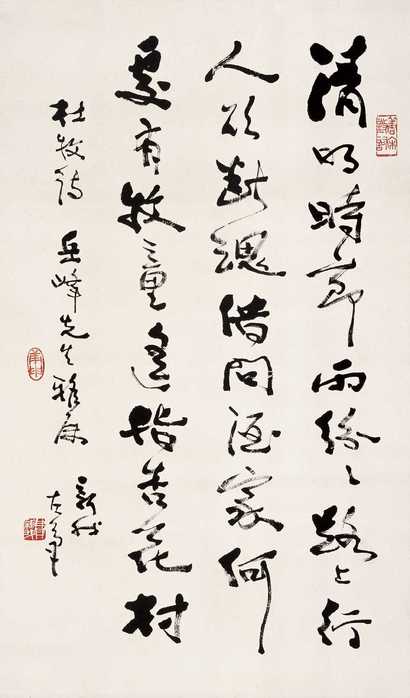 清明時節雨紛〻路上行
人欲斷魂借問酒家何
處有牧童遙指杏花村
杜牧詩 岳峰先生雅屬